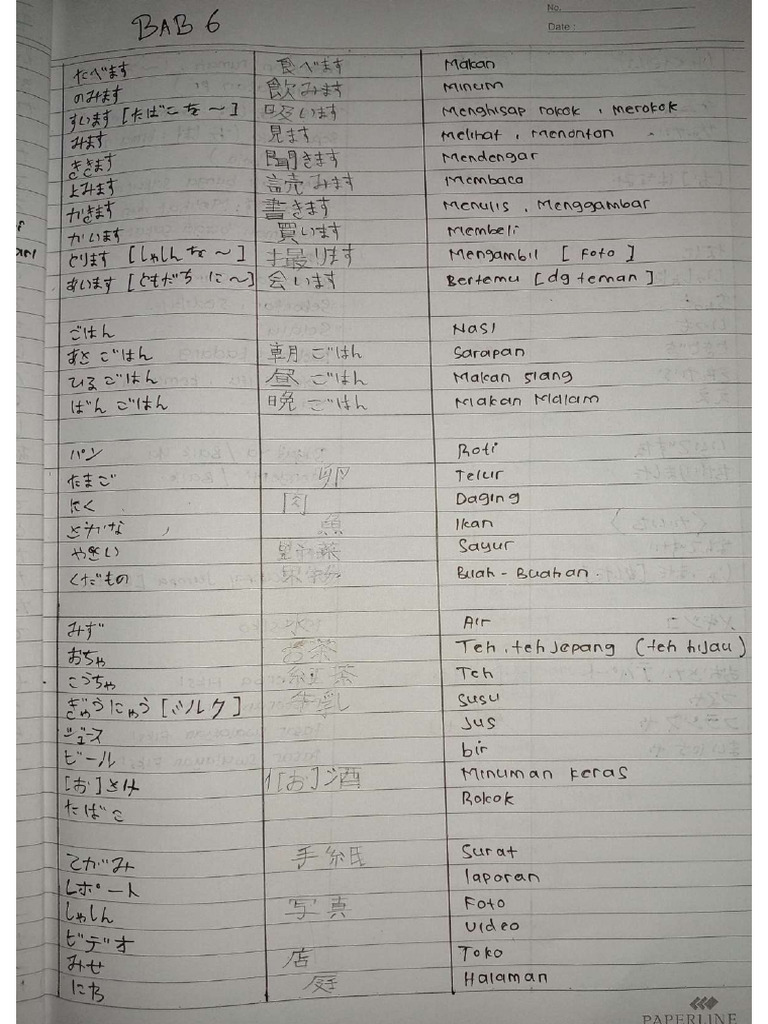 No.
BAB 6
Date :
たべます 食べます Makan
のみます 飲みます Minum
すいます [たばこを ~] 吸います Menghisap rokok , Merokok
みます 見ます Melihat , Menonton
ききます 聞きます Mendengar
よみます 読みます Membaca
かきます 書きます Menulis , Menggambar
かいます 買います Membeli
とります [しゃしんを ~] 撮ります Mengambil [ Foto ]
あいます [ともだちに ~] 会います Bertemu [dg teman]
ごはん Nasi
あさごはん 朝ごはん Sarapan
ひるごはん 昼ごはん Makan siang
ばんごはん 晩ごはん Makan Malam
パン Roti
たまご 卵 Telur
にく 肉 Daging
さかな 魚 Ikan
やさい 野菜 Sayur
くだもの 果物 Buah - Buahan.
みず 水 Air
おちゃ お茶 Teh, teh Jepang (teh hijau)
こうちゃ 紅茶 Teh
ぎゅうにゅう [ミルク] 牛乳 Susu
ジュース Jus
ビール bir
[お]さけ [お]酒 Minuman keras
たばこ Rokok
てがみ 手紙 Surat
レポート laporan
しゃしん 写真 Foto
ビデオ Video
みせ 店 Toko
にわ 庭 Halaman
PAPERLINE